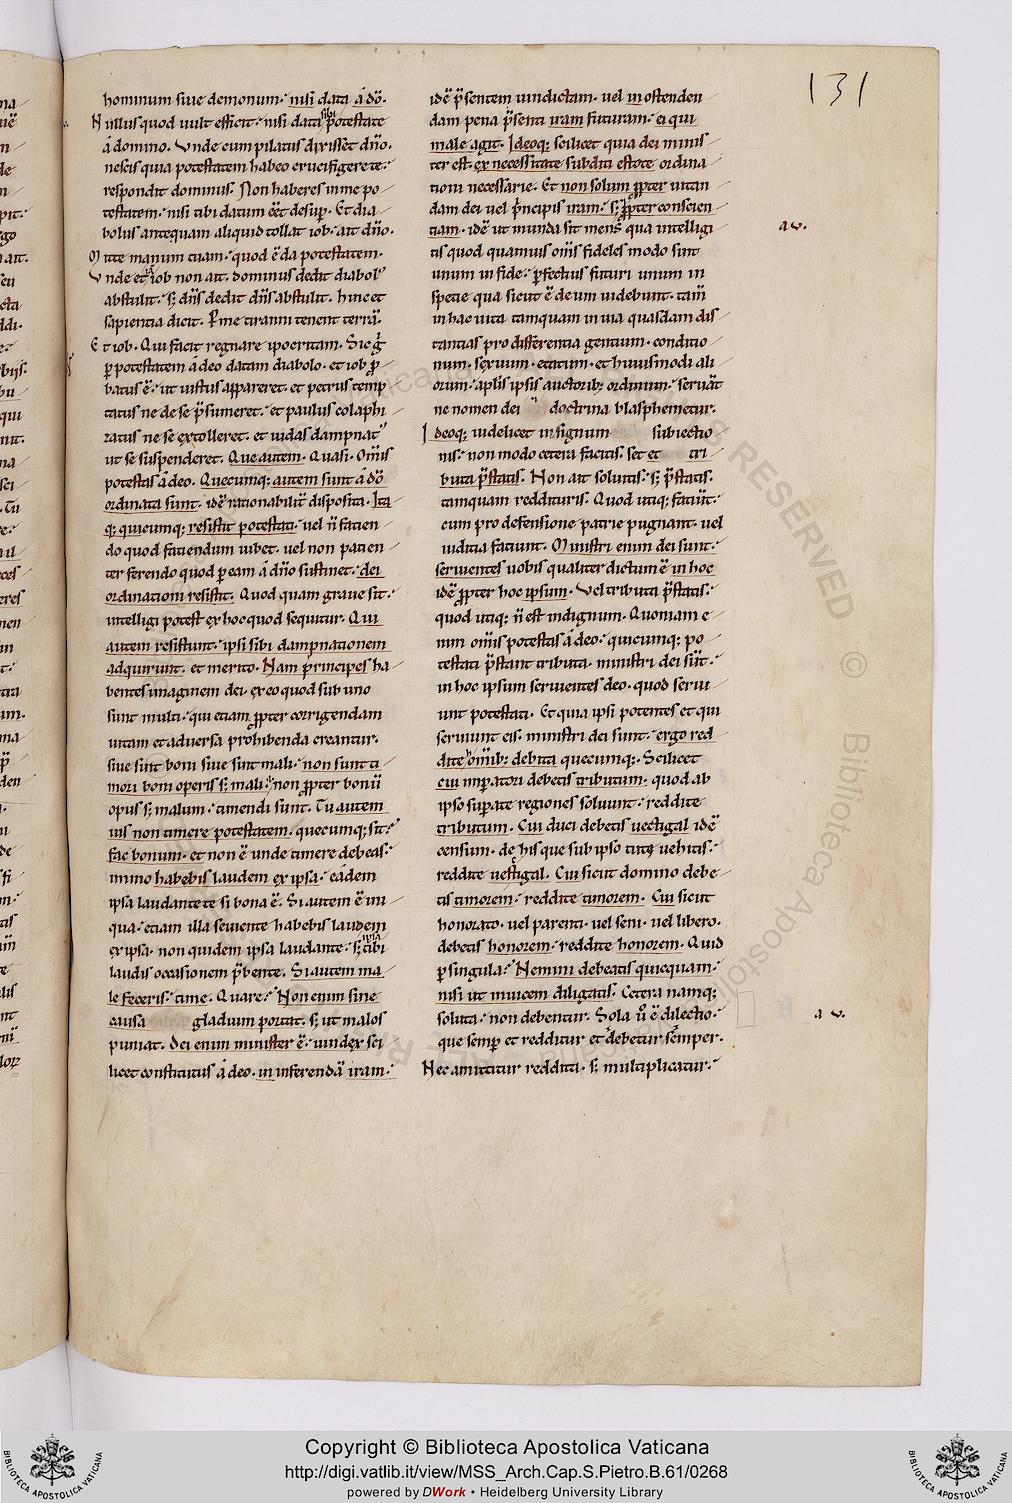 131
hominum siue demonum. nisi data a dō.
Nullus quod uult efficit. nisi data sibi p̄ potestate
a domino. Vnde cum pilatus dixisset dn̄o.
nescis quia potestatem habeo crucifigere te.
respondit dominus. Non haberes in me po
testatem. nisi tibi datum eēt desup. Et dia
bolus anteq̄uam aliquid tollat iob. ait dn̄o.
Mitte manum tuam. quod ē da potestatem.
Vnde et iob non ait. dominus dedit diabol᷒
abstulit. s; dn̄s dedit dn̄s abstulit. hinc et
sapientia dicit. Per me tiranni tenent terrā.
Et iob. Qui facit regnare ipocritam. Sic g̊
p potestatem a deo datam diabolo. et iob p̄
batus ē. ut iustus appareret. et petrus temp
tatus ne de se p̄sumeret. et paulus colaphi
zatus ne se extolleret. et iudas dampnat᷒
ut se suspenderet. Que autem. Quasi. Om̄is
potestas a deo. Quecumq; autem sunt a dō
ordinata sunt. idē rationabilit̄ disposita. Ita
q; quicumq; resistit potestati. uel n̄ facien
do quod faciendum iubet. uel non pacien
ter ferendo quod p eam a dn̄o sustinet. dei
ordinationi resistit. Quod quam graue sit.
intelligi potest ex hoc quod sequitur. Qui
autem resistunt. ipsi sibi dampnationem
adquirunt. et merito. Nam principes ha
bentes imaginem dei. ex eo quod sub uno
sunt multi. qui etiam ꝓpter corrigendam
uitam et aduersa prohibenda creantur.
siue sint boni siue sint mali. non sunt ti
mori boni operis s; mali. non ꝓpter bonū
opus s; malum. timendi sunt. Tu autem
uis non timere potestatem. quecumq; sit.
fac bonum. et non ē unde timere debeas.
immo habebis laudem ex ipsa. eādem
ipsa laudante te si bona ē. Si autem ē ini
qua. etiam illa seuiente habebis laudem
ex ipsa. non quidem ipsa laudante. s; ipsa tibi
laudis occasionem p̄bente. Si autem ma
le feceris. time. Quare. Non enim sine
causa gladium portat. s; ut malos
puniat. Dei enim minister ē. uindex sci
licet constitutus a deo. in inferendā iram.
idē p̄sentem uindictam. uel in ostenden
dam pena p̄senti iram futuram. ei qui
male agit. Ideoq; scilicet quia dei minis
ter est. ex necessitate subditi estote ordina
tioni necessarie. Et non solum ꝓpter uitan
dam dei uel p̄ncipis iram. s; ꝓpter conscien
tiam. idē ut munda sit mens. qua intelligi
tis quod quamuis om̄s fideles modo sint
unum in fide. perfectius futuri unum in
specie qua sicut ē deum uidebunt. tam̄
in hac uita tamquam in uia quasdam dis
tantias pro differentia gentium. conditio
num. sexuum. etatum. et huiusmodi ali
orum. aplis ipsis auctorib; ordinum. seruāt
ne nomen dei doctrina blasphemetur.
Ideoq; uidelicet in signum subiectio
nis. non modo cetera facitis. set et tri
buta p̄statis. Non ait soluitis. s; p̄statis.
tamquam reddituris. Quod utiq; faciūt.
cum pro defensione patrie pugnant. uel
iuditia faciunt. Ministri enim dei sunt.
seruientes uobis qualiter dictum ē in hoc
idē ꝓpter hoc ipsum. Vel tributa p̄statis.
quod utiq; n̄ est indignum. Quoniam e
nim om̄is potestas a deo. quicumq; po
testati p̄stant tributa. ministri dei sūt.
in hoc ipsum seruientes deo. quod serui
unt potestati. Et quia ipsi potentes et qui
seruiunt eis. ministri dei sunt. ergo red
dite om̄ib; debita quecumq;. Scilicet
cui imp̄atori debetis tributum. quod ab
ipso sup̄ate regiones soluunt. reddite
tributum. Cui duci debetis uectigal idē
censum. de his que sub ipso uehitis.
reddite uectigal. Cui sicut domino debe
tis timorem. reddite timorem. Cui sicut
honorato. uel parenti. uel seni. uel libero.
debetis honorem. reddite honorem. Quid
p singula. Nemini debeatis quicquam.
nisi ut inuicem diligatis. Cetera namq;
soluta. non debentur. Sola u̇ ē dilectio.
que semp et redditur et debetur semper.
Nec amittitur redditi. s; multiplicatur.
av.
av.
Copyright © Biblioteca Apostolica Vaticana
http://digi.vatlib.it/view/MSS_Arch.Cap.S.Pietro.B.61/0268
powered by DWork • Heidelberg University Library